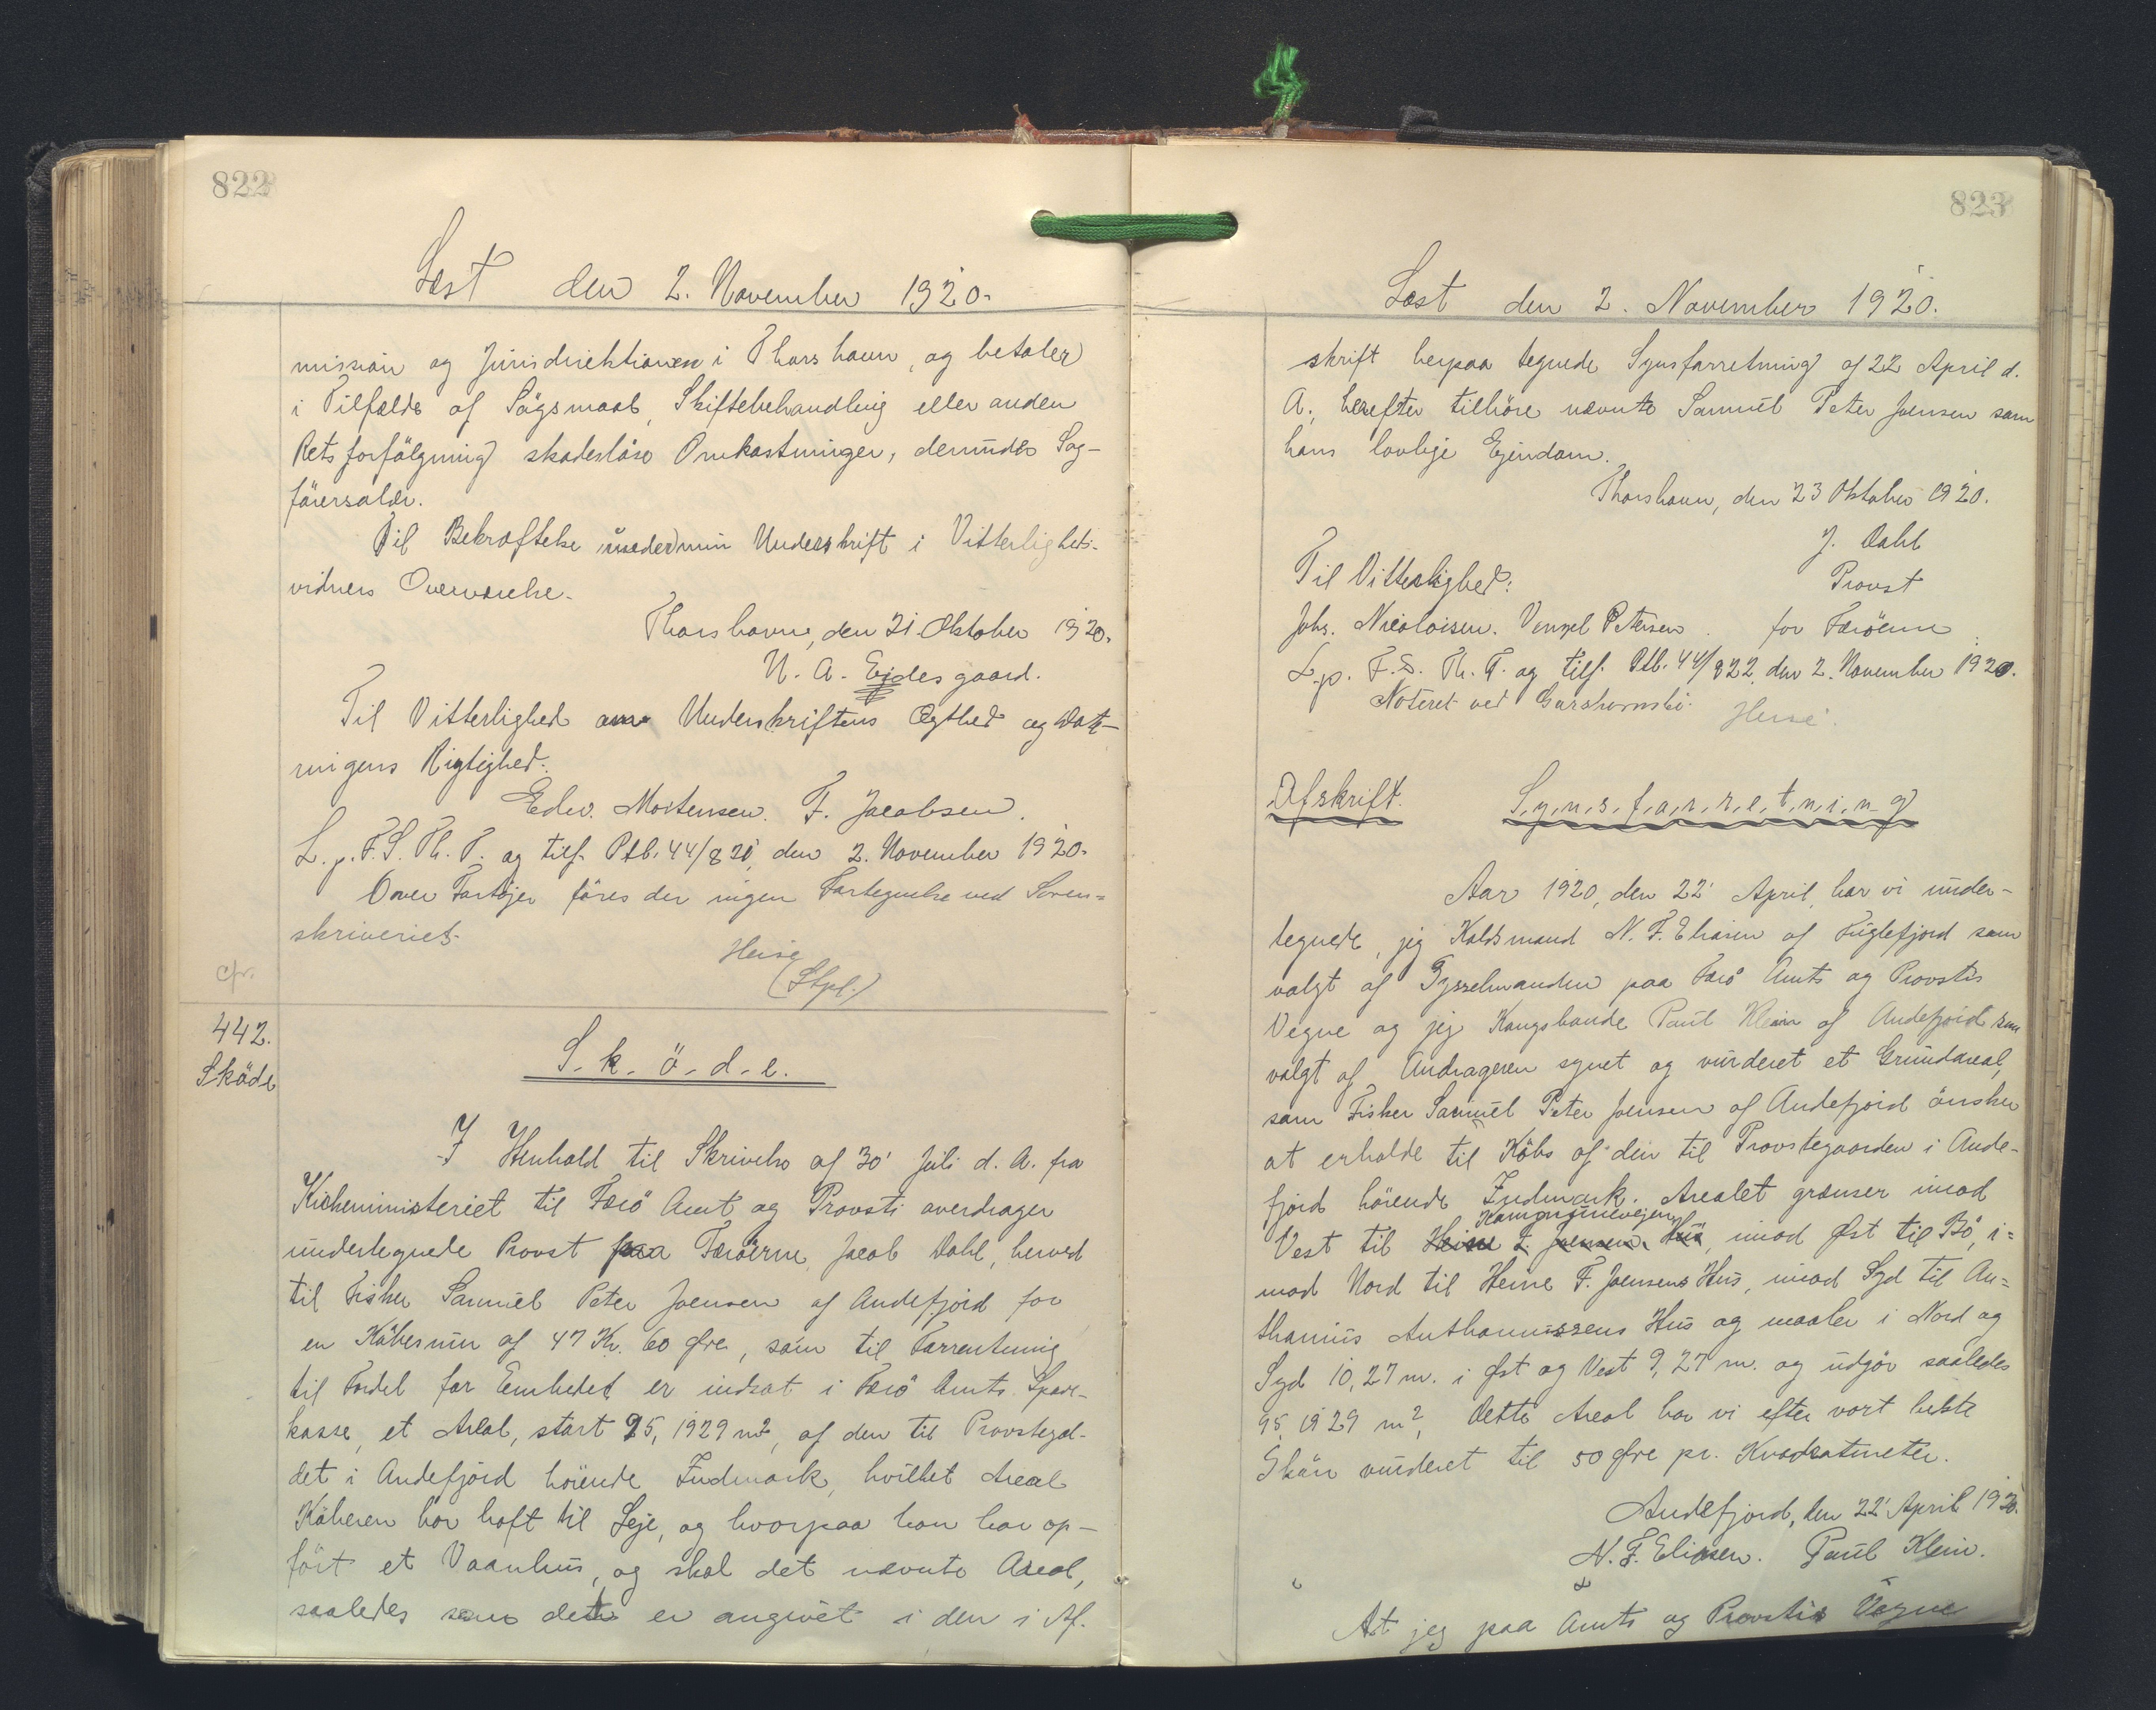 822
Læst den 2. November 1920.
mission og Jurisdiktionen i Thorshavn, og betaler
i Tilfælde af Sögsmaal, Skiftebehandling eller anden
Retsforfölgning skadeslöse Omkostninger, derunder Sag-
förersalær.
Til Bekræftelse under min Underskrift i Vitterligheds-
vidners Overværelse.
Thorshavn, den 21 Oktober 1920.
N. A. Ejdesgaard.
Til Vitterlighed om Underskriftens Ægthed og Date-
ringens Rigtighed:
Edw. Mortensen. F. Jacobsen.
L. p. F. S. Th. T. og tilf. Ptb. 44/820, den 2. November 1920.
Over Fartöjer föres der ingen Fortegnelse ved Soren-
skriveriet.
Heise
(Stpl.)
cfr.
442.
Sköde
S-k-ö-d-e.
I Henhold til Skrivelse af 30' Juli d. A. fra
Kirkeministeriet til Færö Amt og Provsti overdrager
undertegnede Provst paa Færöerne, Jacob Dahl, herved
til Fisker Samuel Peter Joensen af Andefjord for
en Köbesum af 47 Kr. 60 Øre, som til Forrentning
til Fordel for Embedet er indsat i Færö Amts Spare-
kasse, et Areal, stort 95,1929 m², af den til Provstegol-
det i Andefjord hörende Indmark, hvilket Areal
Köberen har haft til Leje, og hvorpaa han har op-
fört et Vaanhus, og skal det nævnte Areal,
saaledes som dette er angivet i den i Af-
823
Læst den 2. November 1920.
skrift herpaa tegnede Synsforretning af 22 April d.
A., herefter tilhöre nævnte Samuel Peter Joensen som
hans lovlige Ejendom.
Thorshavn, den 23 Oktober 1920.
J. Dahl
Til Vitterlighed:
Provst
Johs. Nicolaisen. Venzel Petersen. for Færöerne
L. p. F. S. Th. T. og tilf. Ptb. 44/822, den 2. November 1920.
Noteret ved
Heise.
Afskrift.
S.y.n.s.f.o.r.r.e.t.n.i.n.g
Aar 1920, den 22' April, har vi under-
tegnede, jeg Koldsmand N. F. Eliasen af Fuglefjord som
valgt af Sysselmanden paa Færö Amts og Provstis
Vegne og jeg Kongsbonde Paul Klein af Andefjord som
valgt af Andrageren synet og vurderet et Grundareal,
som Fisker Samuel Peter Joensen af Andefjord önsker
at erholde til Köbs af den til Provstegaarden i Ande-
fjord hörende Indmark. Arealet grænser imod
Kommunevejen
Vest til Heine F. Joensens Hus, imod Øst til Bö, i-
mod Nord til Heine F. Joensens Hus, imod Syd til An-
thanius Anthoniussens Hus og maaler i Nord og
Syd 10,27 m. i Øst og Vest 9,27 m. og udgör saaledes
95,1929 m², dette Areal har vi efter vort bedste
Skön vurderet til 50 Øre pr. Kvadratmeter.
Andefjord, den 22' April 1920.
N. F. Eliasen. Paul Klein.
At jeg paa Amts og Provstis Vegne